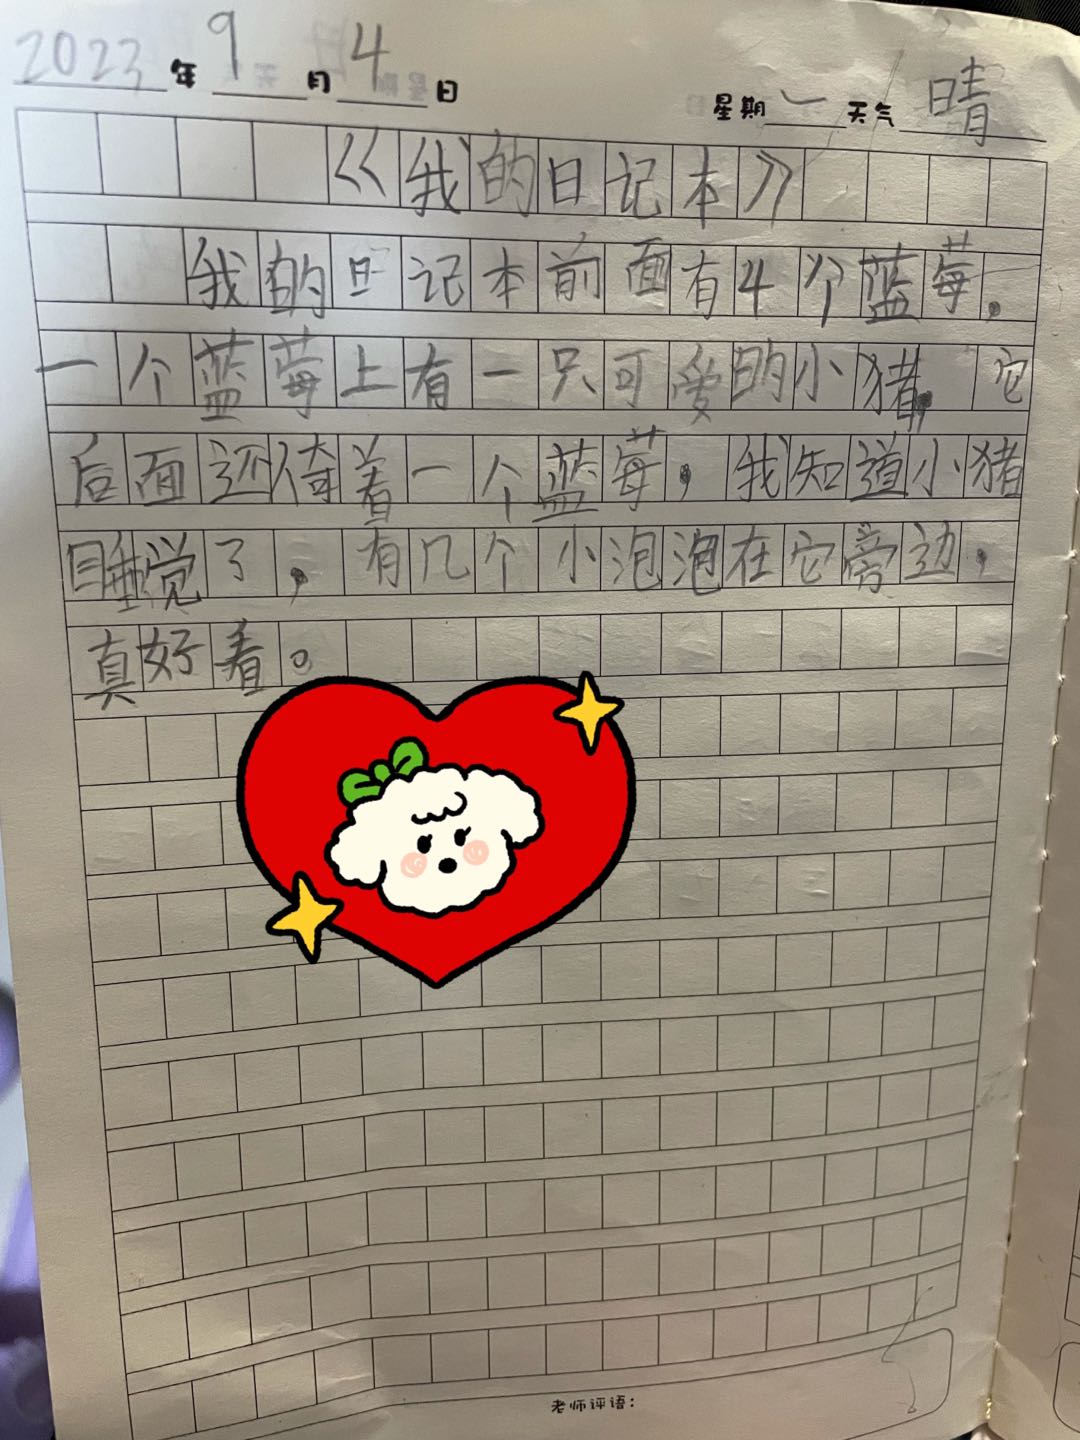 2023年9月4日 星期一 天气 晴
《我的日记本》
我的日记本前面有4个蓝莓，
一个蓝莓上有一只可爱的小猪，它
后面还倚着一个蓝莓，我知道小猪
睡觉了，有几个小泡泡在它旁边，
真好看。
老师评语：